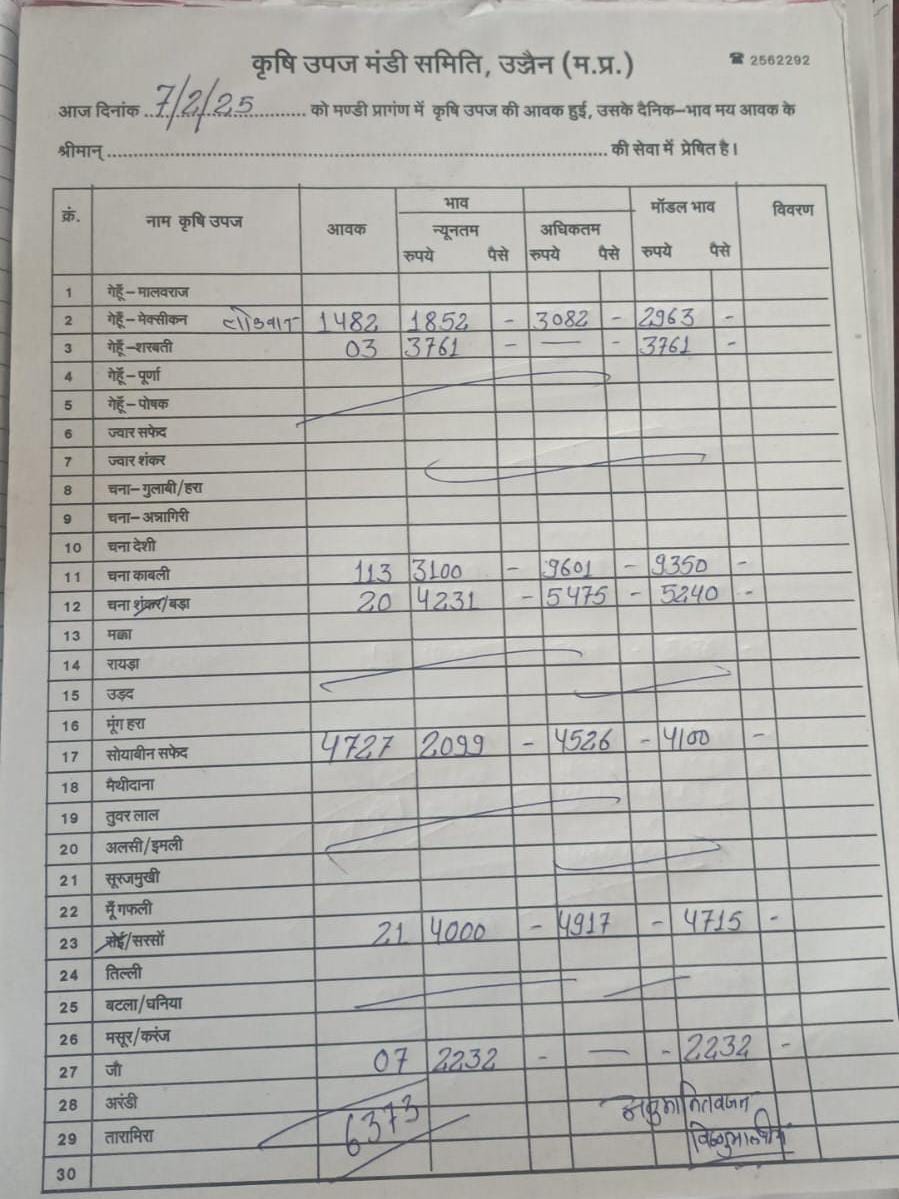 कृषि उपज मंडी समिति, उज्जैन (म.प्र.) ☎ 2562292
आज दिनांक ..7/2/25............ को मण्डी प्रागंण में कृषि उपज की आवक हुई, उसके दैनिक–भाव मय आवक के
श्रीमान् ........................................ की सेवा में प्रेषित है।
क्रं. नाम कृषि उपज आवक भाव मॉडल भाव विवरण
न्यूनतम अधिकतम
रुपये पैसे रुपये पैसे रुपये पैसे
1 गेहूँ – मालवराज
2 गेहूँ – मेक्सीकन लोकवान 1482 1852 - 3082 - 2963 -
3 गेहूँ –शरबती 03 3761 - — - 3761 -
4 गेहूँ – पूर्णा
5 गेहूँ – पोषक
6 ज्वार सफेद
7 ज्वार शंकर
8 चना–गुलाबी/हरा
9 चना– अन्नागिरी
10 चना देशी
11 चना काबली 113 3100 - 9601 - 9350 -
12 चना शंकर/बड़ा 20 4231 - 5475 - 5240 -
13 मक्का
14 रायड़ा
15 उड़द
16 मूंग हरा
17 सोयाबीन सफेद 4727 2099 - 4526 - 4100 -
18 मैथीदाना
19 तुवर लाल
20 अलसी/इमली
21 सूरजमुखी
22 मूँगफली
23 सोई/सरसों 21 4000 - 4917 - 4715 -
24 तिल्ली
25 बटला/धनिया
26 मसूर/करंज
27 जौ 07 2232 - — - 2232 -
28 अरंडी
29 तारामिरा 6373
30